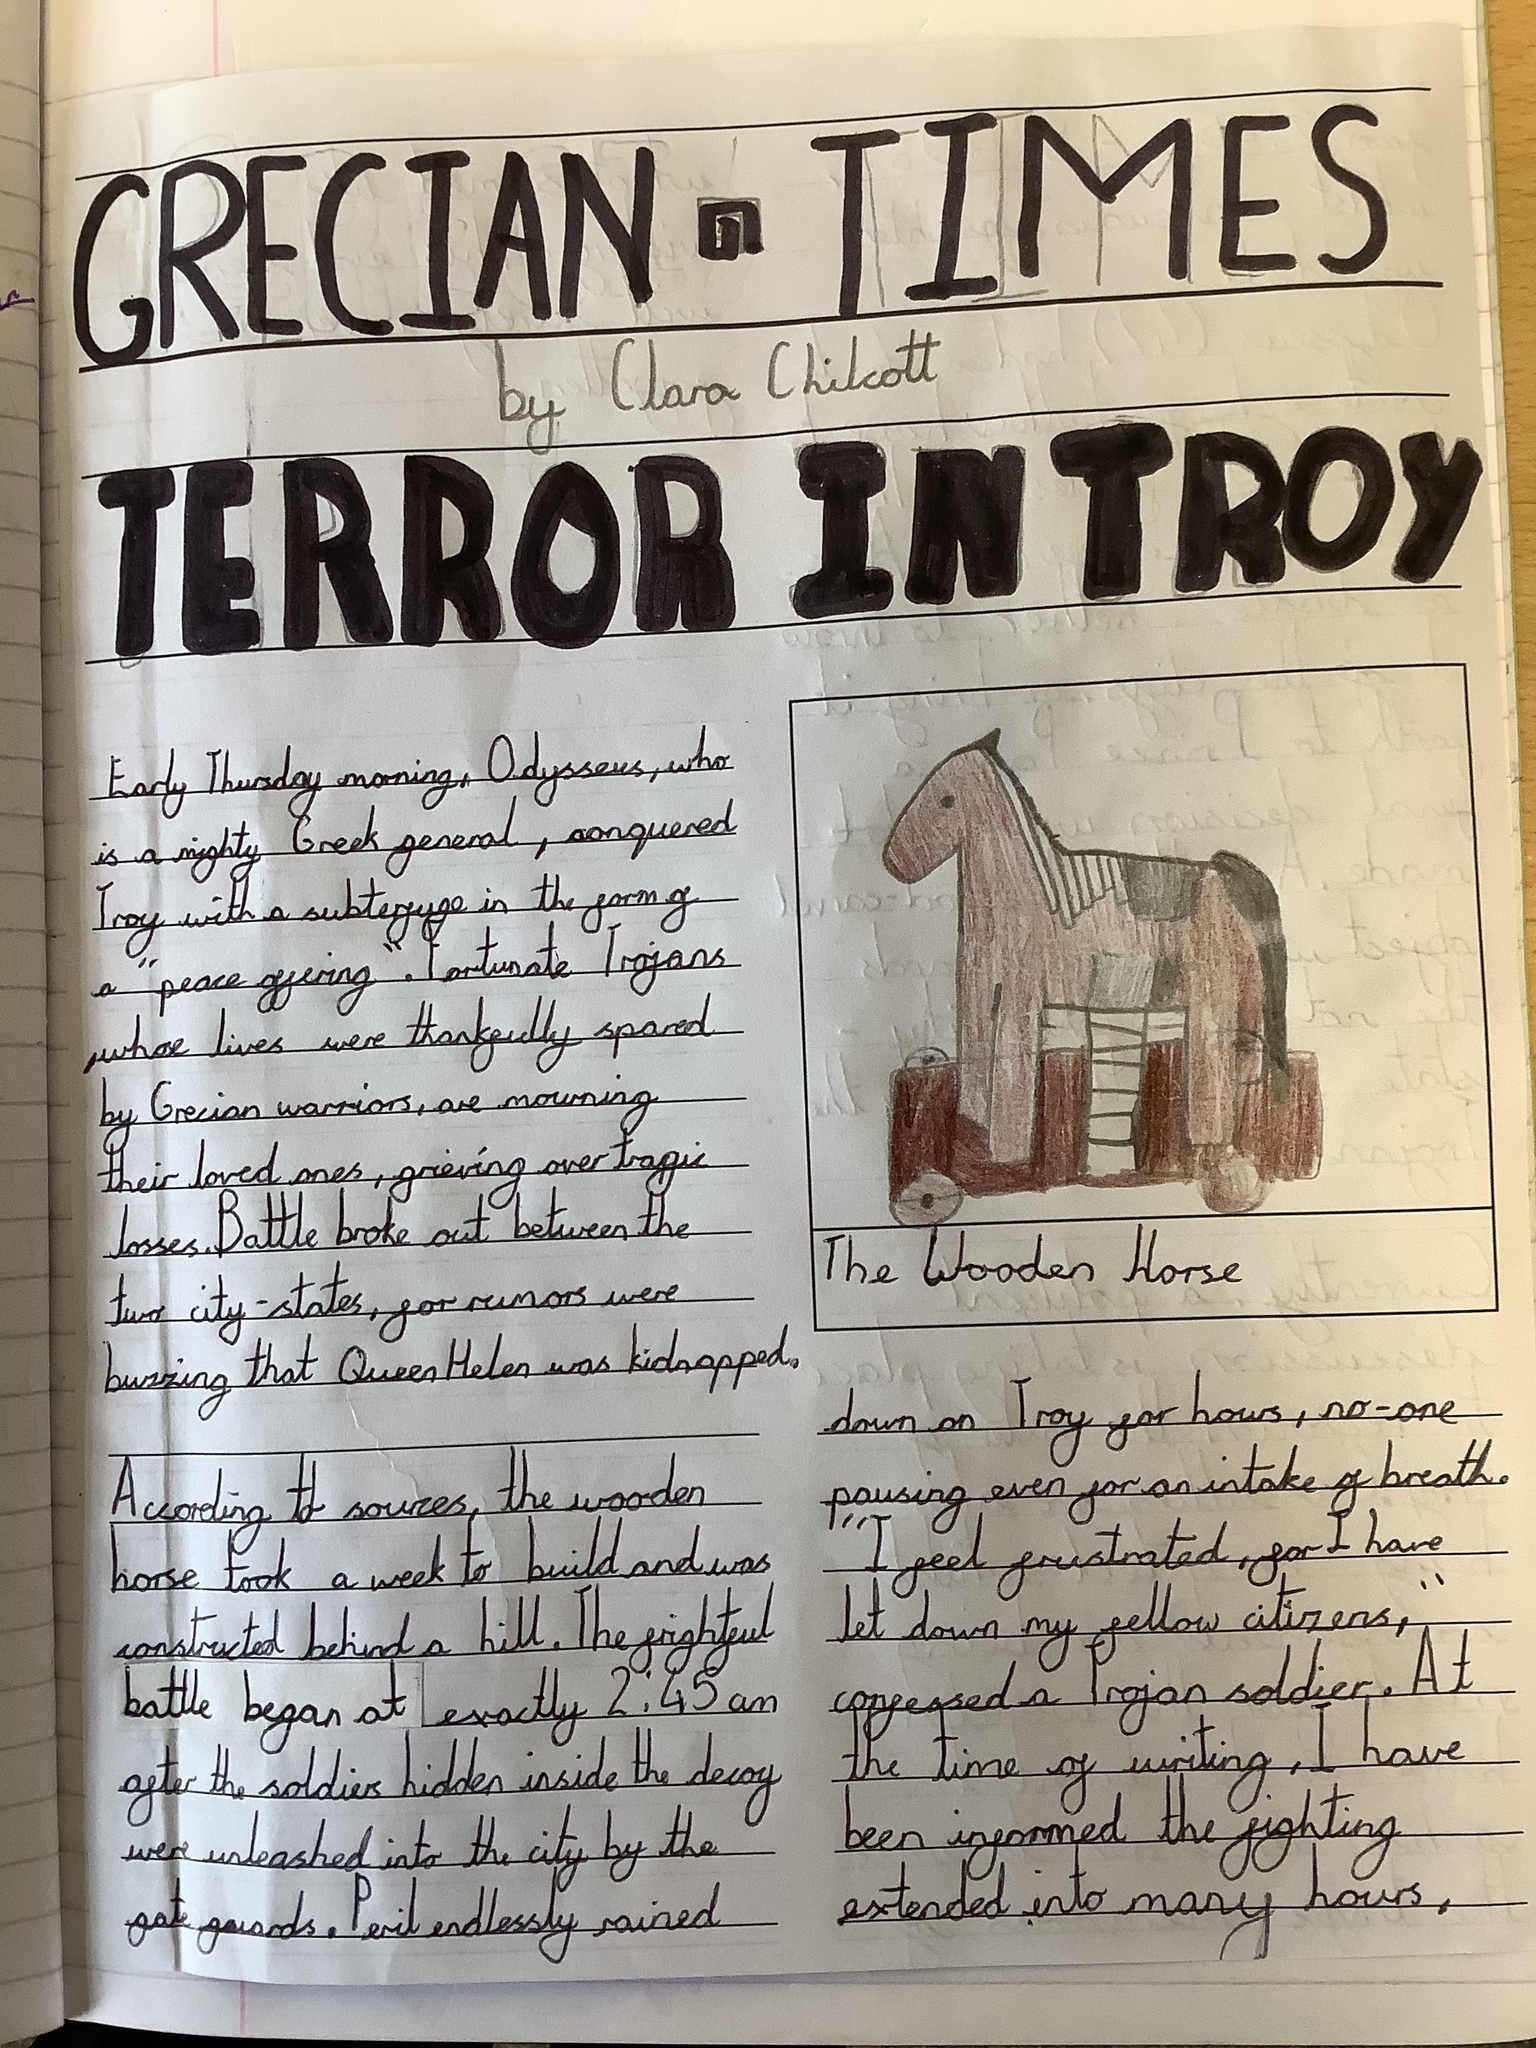 GRECIAN TIMES
by Clara Chilcott
TERROR IN TROY
Early Thursday morning, Odysseus, who
is a mighty Greek general, conquered
Troy with a subterfuge in the form of
a "peace offering". Fortunate Trojans
, whose lives were thankfully spared
by Grecian warriors, are mourning
their loved ones, grieving over tragic
losses. Battle broke out between the
two city-states, for rumors were
buzzing that Queen Helen was kidnapped.
According to sources, the wooden
horse took a week to build and was
constructed behind a hill. The frightful
battle began at exactly 2:45 am
after the soldiers hidden inside the decoy
were unleashed into the city by the
gate guards. Peril endlessly rained
The Wooden Horse
down on Troy for hours, no-one
pausing even for an intake of breath.
"I feel frustrated, for I have
let down my fellow citizens,"
confessed a Trojan soldier. At
the time of writing, I have
been informed the fighting
extended into many hours,